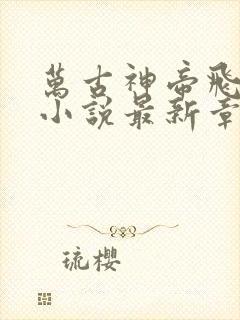 萬古神帝飛
小說最新章
琉櫻